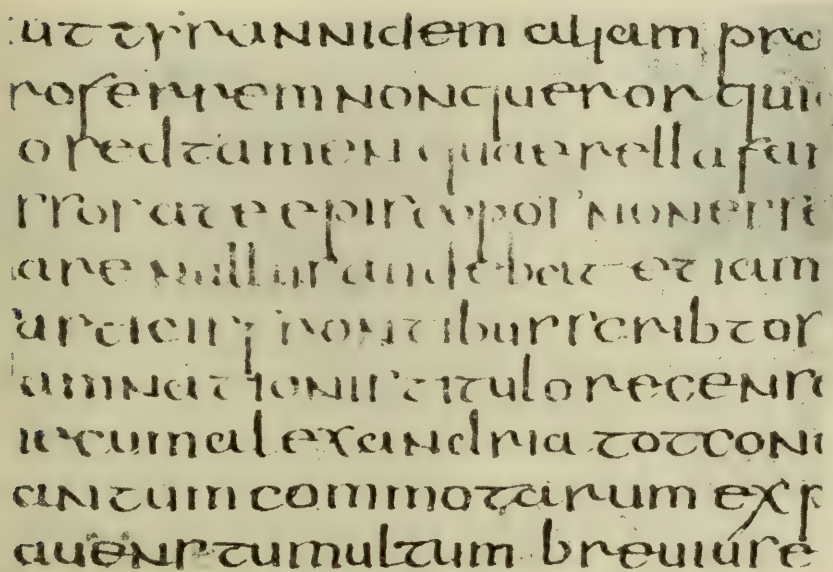 ut tyrannidem aliam pro
roferrem non queror qui
o sed tamen quaerella fam
ssos a te episcopos non esse
are nullus audebat etiam
asticis frontibus scribtos
amnationis titulo recense
mecum alexandria tot con
antum commotarum exp
avens tumultum brevius e